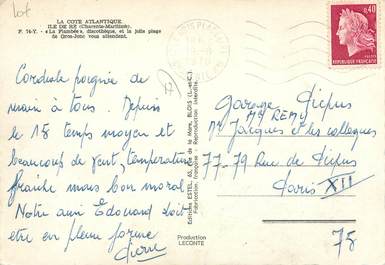 LA COTE ATLANTIQUE
ILE DE RE (Charente-Maritime)
P. 76-Y. - « La Flambée », discothèque, et la jolie plage
de Gros-Jonc vous attendent.
Cordiale poignée de
main à tous. Depuis
le 18 temps moyen et
beaucoup de vent, température
fraîche mais bon moral
Notre ami Edouard doit
être en pleine forme
Pierre
17
Editions ESTEL, 63, rue de la Mare, BLOIS (L.-et-C.)
Fabrication française - Reproduction interdite
Production
LECONTE
0,40
REPUBLIQUE FRANÇAISE
Garage Picpus
Mr REMY
Mr Jacques et les collègues
77-79 Rue de Picpus
Paris XII
75